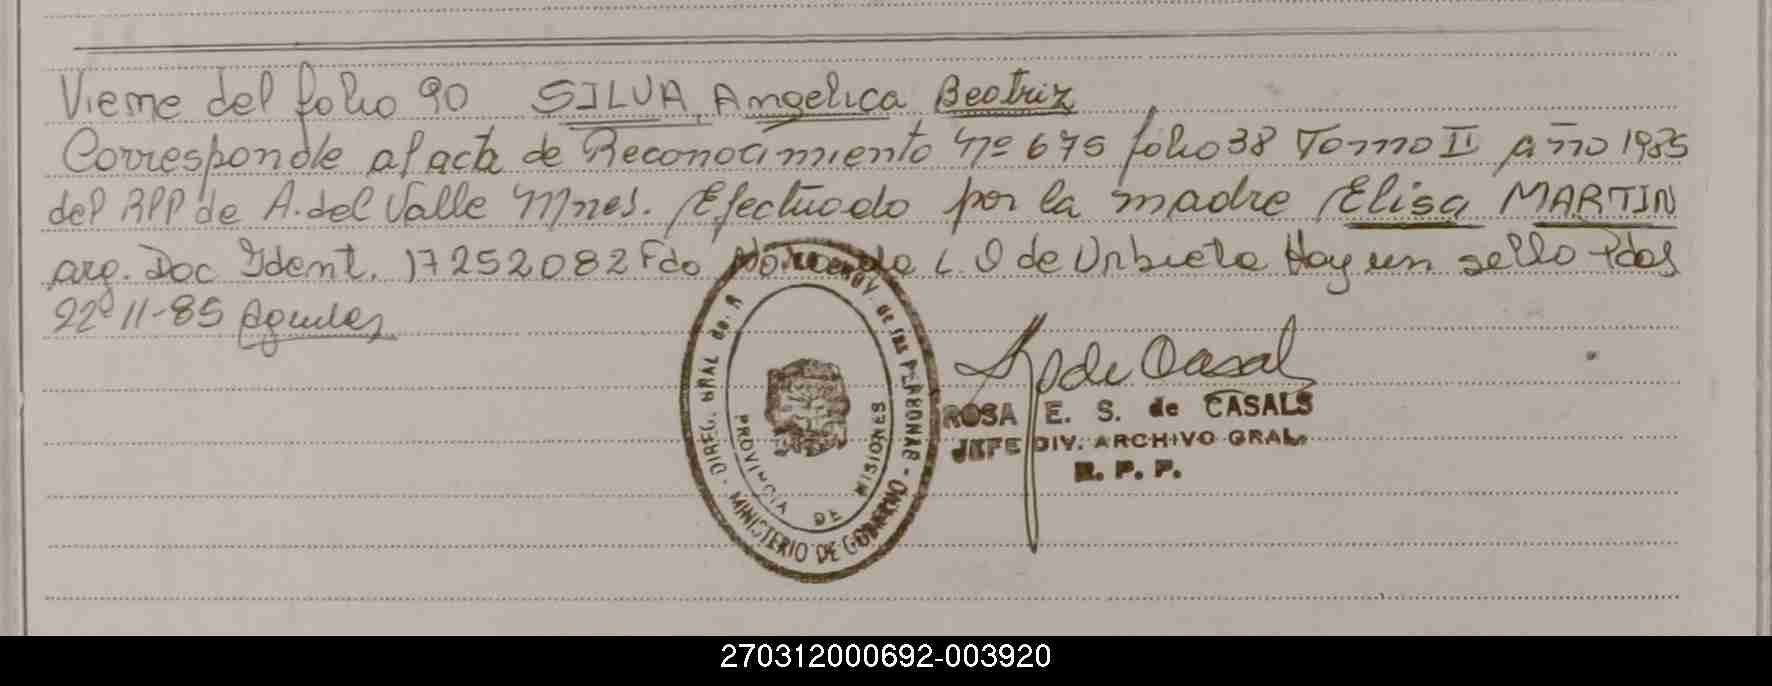 Viene del folio 90 SILVA, Angelica Beatriz
Corresponde al acta de Reconocimiento Nº 675 folio 38 Tomo II Año 1985
del RPP de A. del Valle Mnes. Efectuado por la madre Elisa MARTIN
arg. Doc Ident. 17252082 Fdo L. O de Urbieta Hay un sello Pdas
22-11-85
DIREC. GRAL de. de las PERSONAS - MINISTERIO DE GOBIERNO
PROVINCIA DE MISIONES
de Casal
ROSA E. S. de CASALS
JEFE DIV. ARCHIVO GRAL.
R. P. P.
270312000692-003920